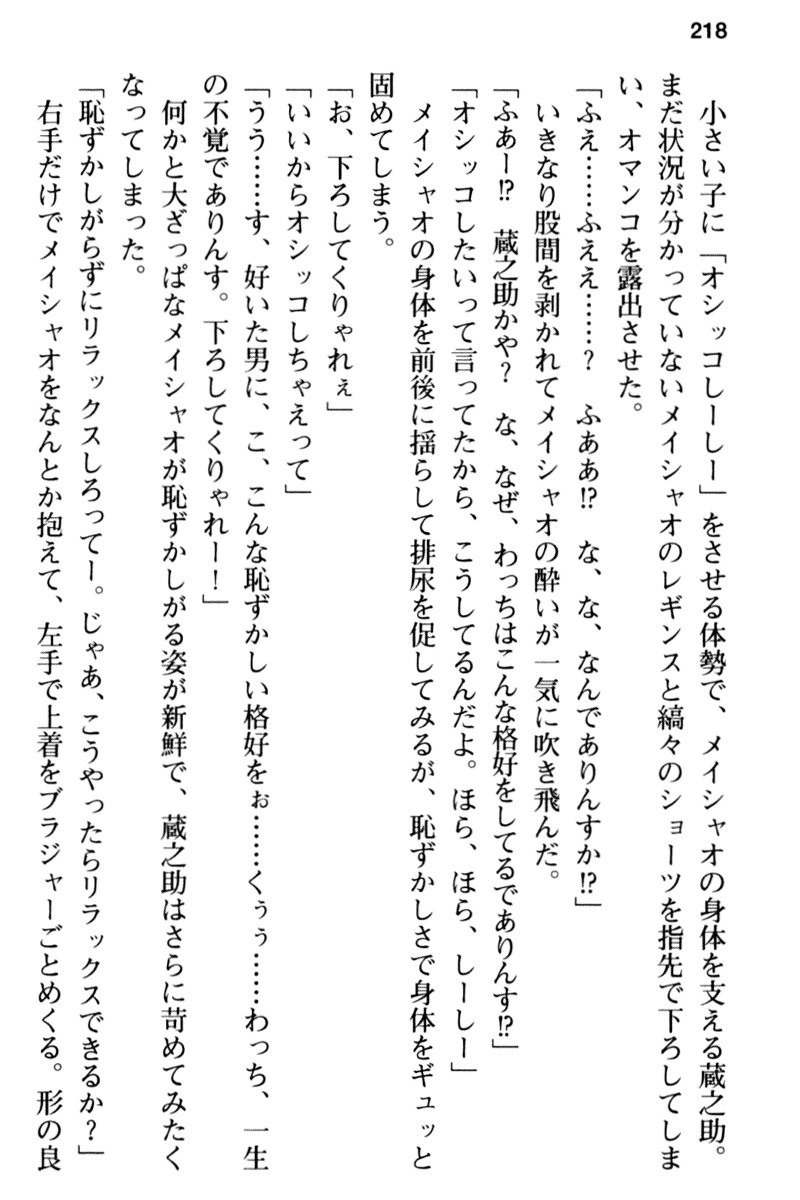 218
小さい子に「オシッコしーしー」をさせる体勢で、メイシャオの身体を支える蔵之助。
まだ状況が分かっていないメイシャオのレギンスと縞々のショーツを指先で下ろしてしま
い、オマンコを露出させた。
「ふえ……ふええ……？　ふぁぁ⁉　な、な、なんでありんすか⁉」
いきなり股間を剥かれてメイシャオの酔いが一気に吹き飛んだ。
「ふあー⁉　蔵之助かや？　な、なぜ、わっちはこんな格好をしてるでありんす⁉」
「オシッコしたいって言ってたから、こうしてるんだよ。ほら、ほら、しーしー」
メイシャオの身体を前後に揺らして排尿を促してみるが、恥ずかしさで身体をギュッと
固めてしまう。
「お、下ろしてくりゃれぇ」
「いいからオシッコしちゃえって」
「うう……す、好いた男に、こ、こんな恥ずかしい格好をぉ……くぅぅ……わっち、一生
の不覚でありんす。下ろしてくりゃれー！」
何かと大ざっぱなメイシャオが恥ずかしがる姿が新鮮で、蔵之助はさらに苛めてみたく
なってしまった。
「恥ずかしがらずにリラックスしろってー。じゃあ、こうやったらリラックスできるか？」
右手だけでメイシャオをなんとか抱えて、左手で上着をブラジャーごとめくる。形の良